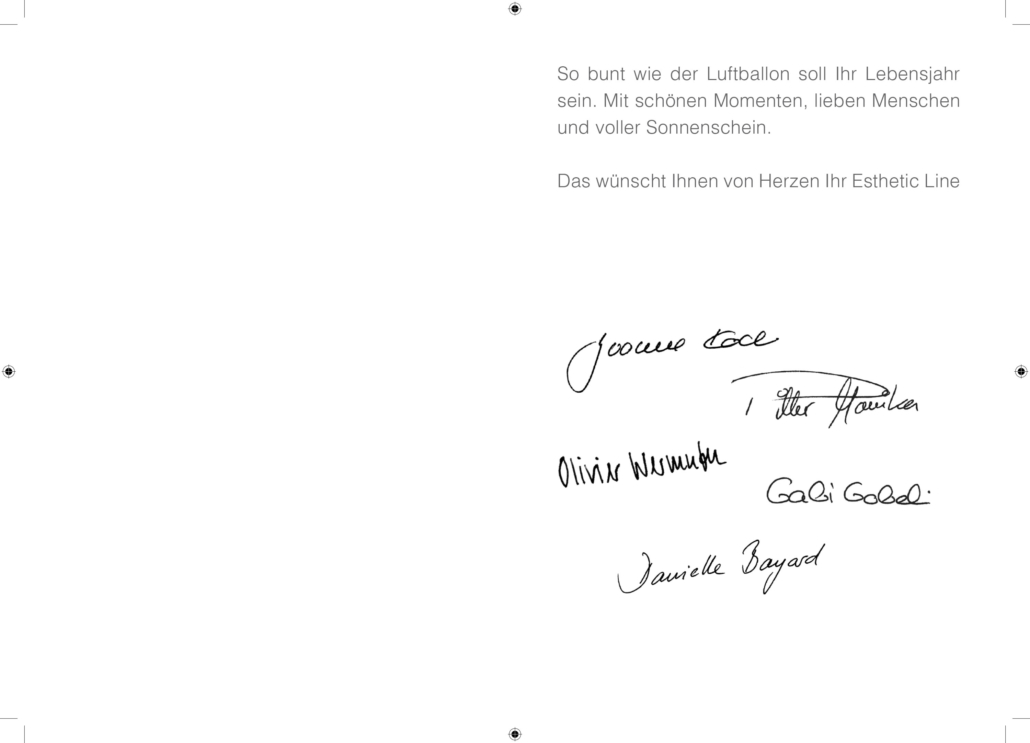 So bunt wie der Luftballon soll Ihr Lebensjahr
sein. Mit schönen Momenten, lieben Menschen
und voller Sonnenschein.
Das wünscht Ihnen von Herzen Ihr Esthetic Line
Olivier Wermuth
Gabi Gobeli
Danielle Bayard